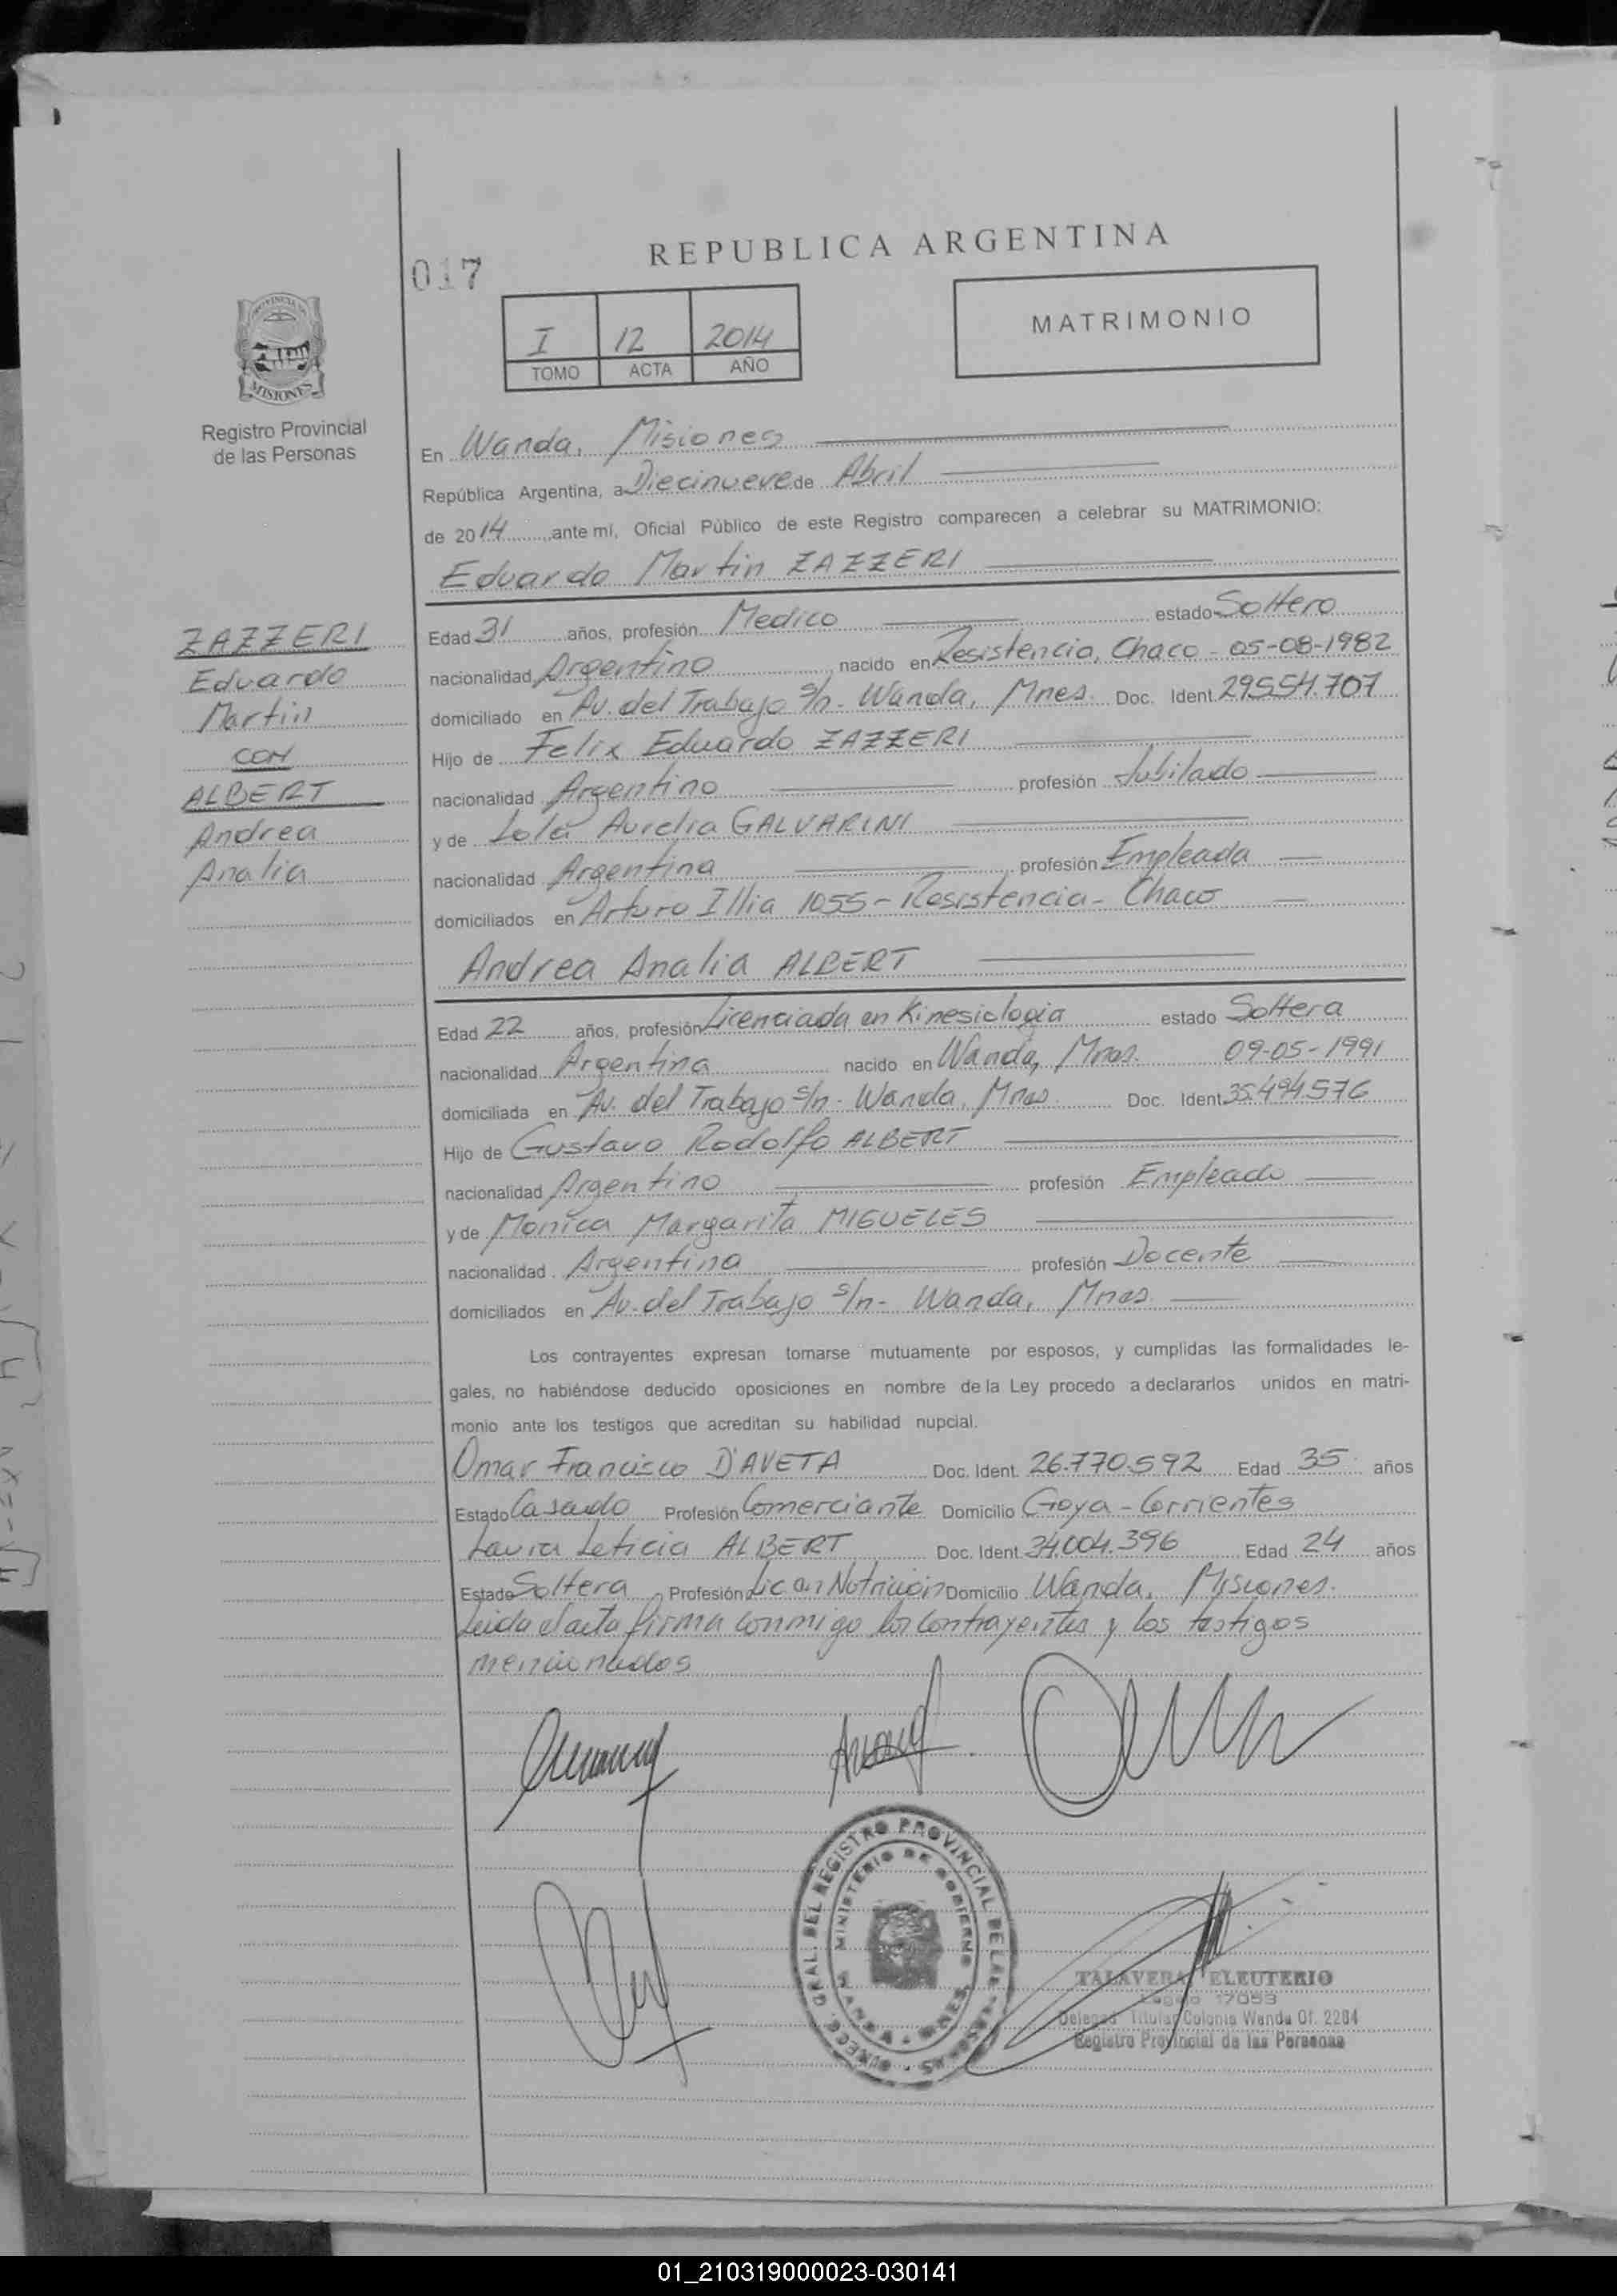 REPUBLICA ARGENTINA
017
MATRIMONIO
I 12 2014
TOMO ACTA AÑO
PROVINCIA DE
MISIONES
Registro Provincial
de las Personas
En Wanda, Misiones
República Argentina, a Diecinueve de Abril
de 2014 ante mí, Oficial Público de este Registro comparecen a celebrar su MATRIMONIO:
Eduardo Martin ZAZZERI
ZAZZERI
Eduardo
Martin
CON
ALBERT
Andrea
Analia
Edad 31 años, profesión Medico estado Soltero
nacionalidad Argentino nacido en Resistencia, Chaco - 05-08-1982
domiciliado en Av. del Trabajo s/n - Wanda, Mnes. Doc. Ident. 29.554.707
Hijo de Felix Eduardo ZAZZERI
nacionalidad Argentino profesión Jubilado
y de Lola Aurelia GALVARINI
nacionalidad Argentina profesión Empleada
domiciliados en Arturo Illia 1055 - Resistencia - Chaco
Andrea Analia ALBERT
Edad 22 años, profesión Licenciada en Kinesiologia estado Soltera
nacionalidad Argentina nacido en Wanda, Mnes. 09-05-1991
domiciliada en Av. del Trabajo s/n - Wanda, Mnes. Doc. Ident. 35.494.576
Hijo de Gustavo Rodolfo ALBERT
nacionalidad Argentino profesión Empleado
y de Monica Margarita MIGUELES
nacionalidad Argentina profesión Docente
domiciliados en Av. del Trabajo s/n - Wanda, Mnes
Los contrayentes expresan tomarse mutuamente por esposos, y cumplidas las formalidades le-
gales, no habiéndose deducido oposiciones en nombre de la Ley procedo a declararlos unidos en matri-
monio ante los testigos que acreditan su habilidad nupcial.
Omar Francisco D'AVETA Doc. Ident. 26.770.592 Edad 35 años
Estado Casado Profesión Comerciante Domicilio Goya - Corrientes
Laura Leticia ALBERT Doc. Ident. 34.004.396 Edad 24 años
Estado Soltera Profesión Lic en Nutrición Domicilio Wanda, Misiones.
Leida el acta firma conmigo los contrayentes y los testigos
mencionados
DIRECC. GRAL. DEL REGISTRO PROVINCIAL DE LAS PERSONAS
MINISTERIO DE GOBIERNO
WANDA - MNES.
TALAVERA ELEUTERIO
Legajo 17053
Delegado Titular Colonia Wanda Of. 2284
Registro Provincial de las Personas
01_210319000023-030141